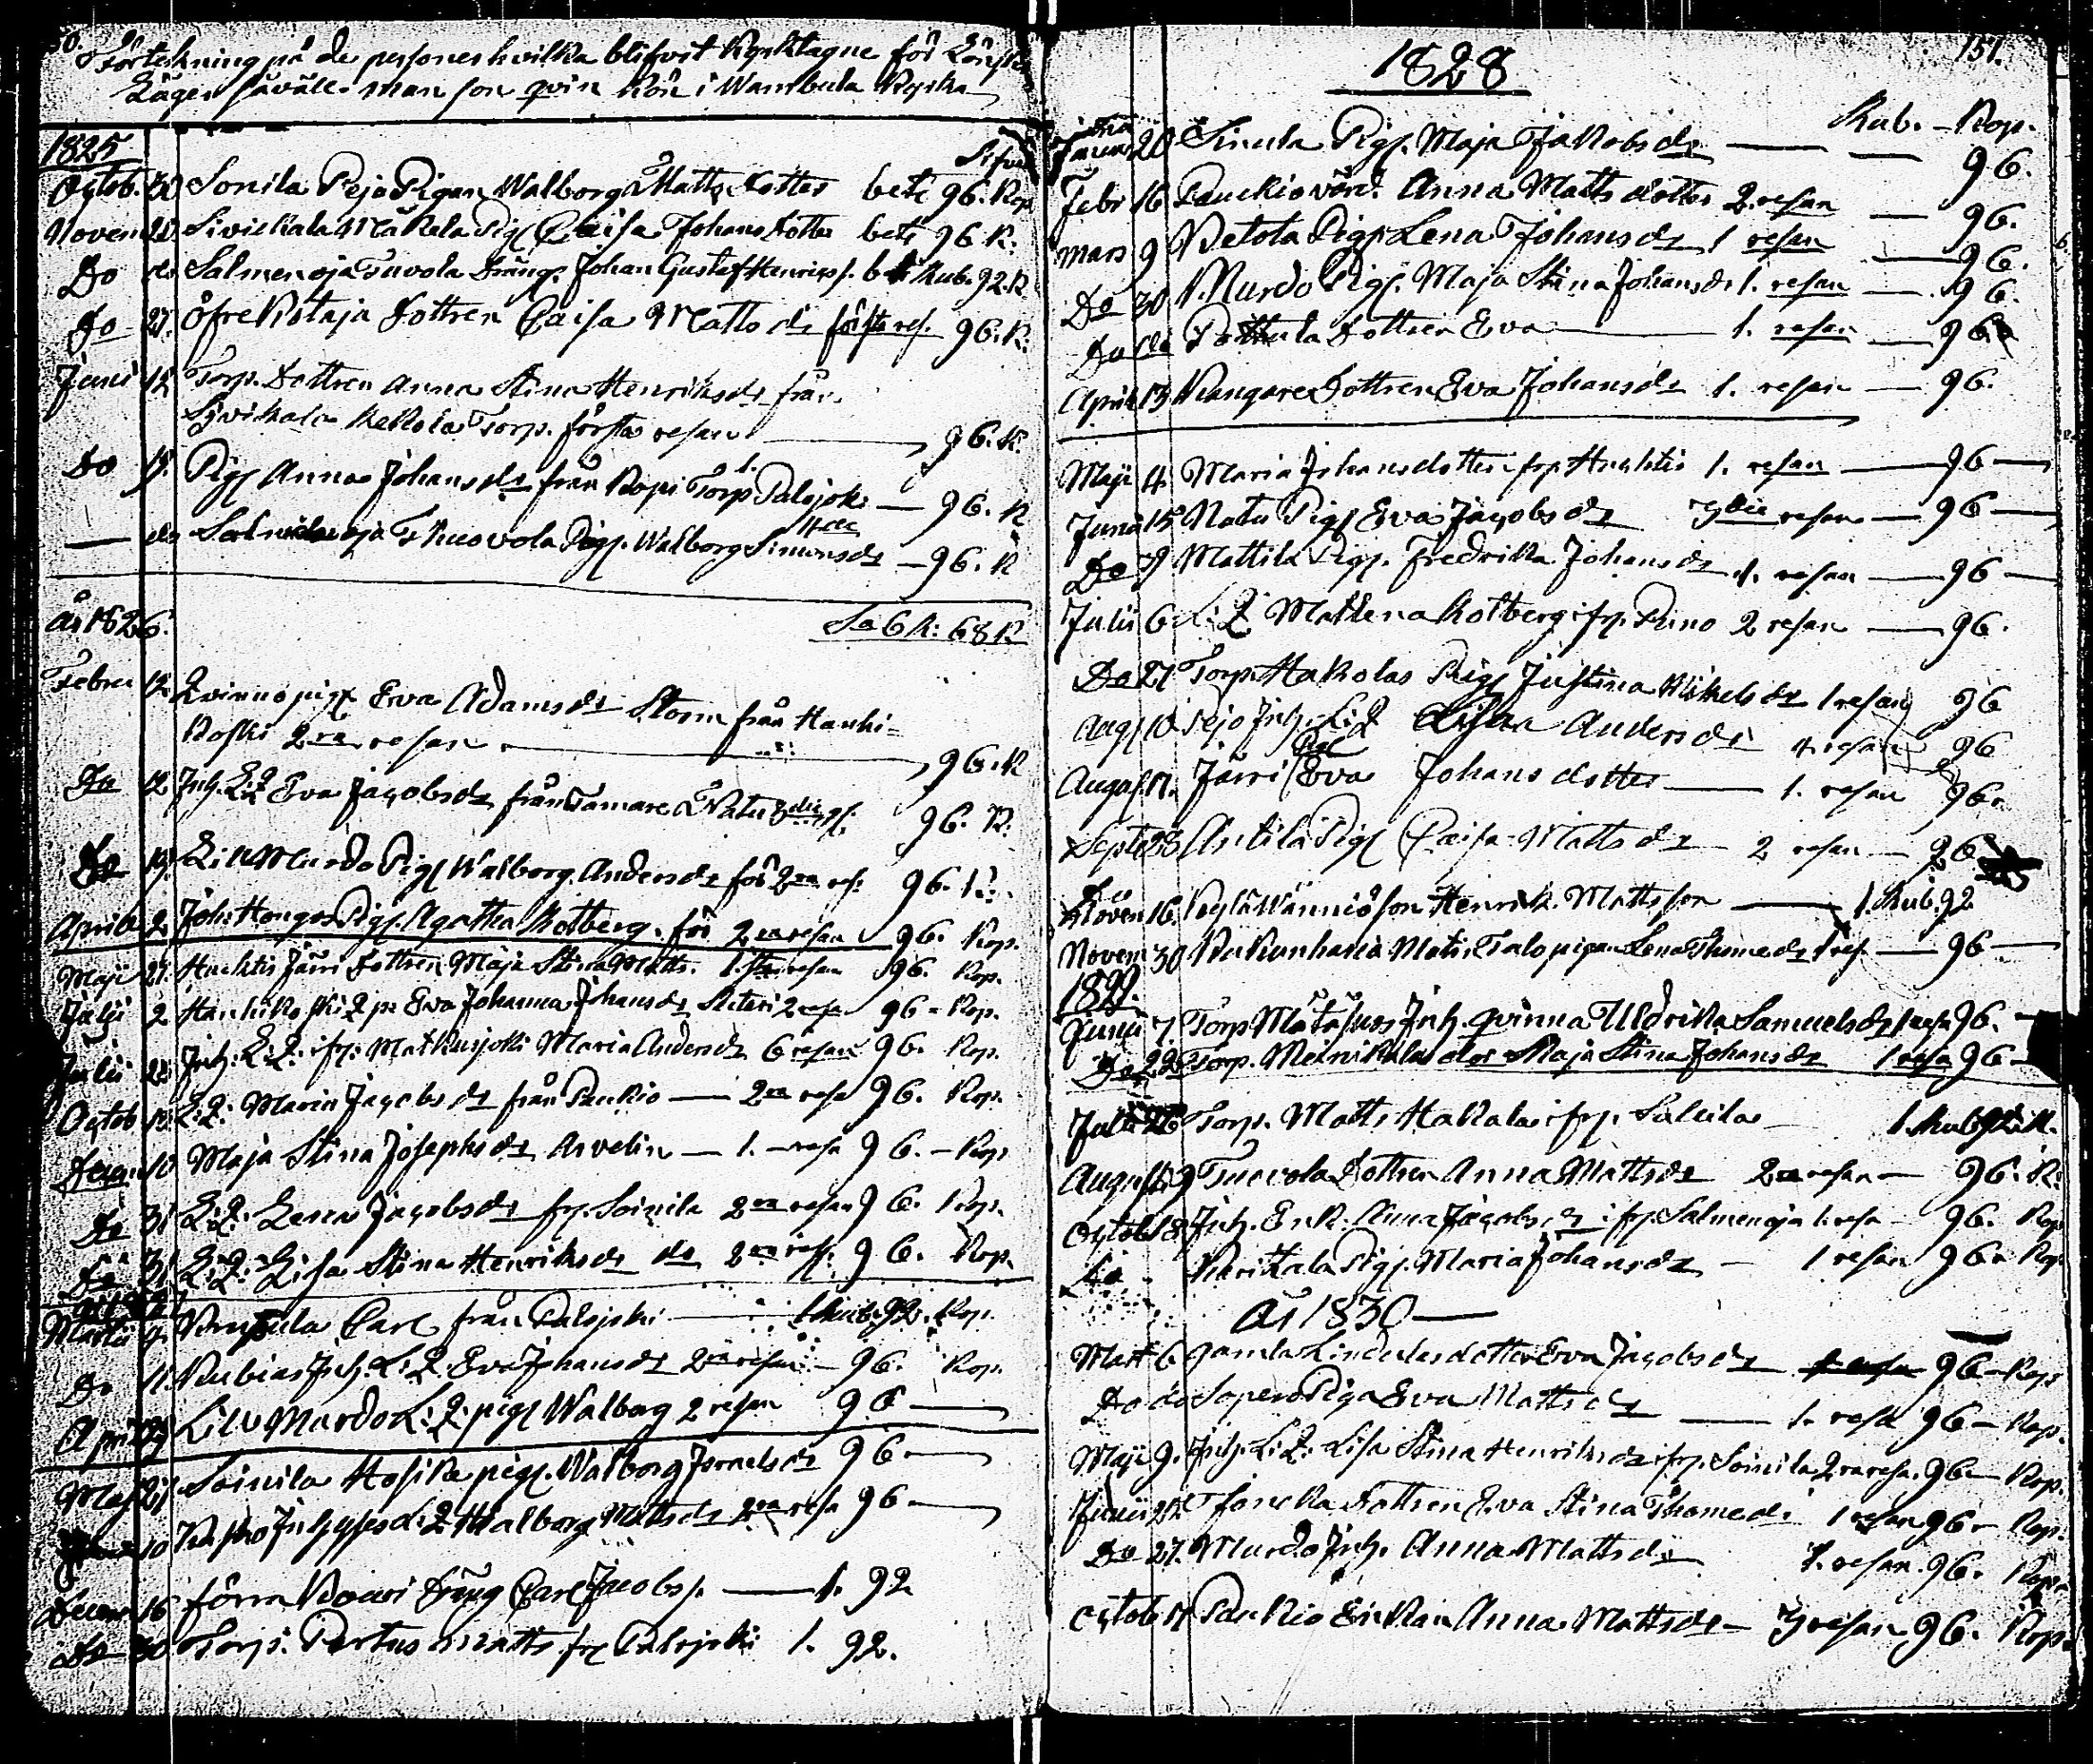 50.
Förtekning på de personer hvilka blifvit Kyrktagne för Löns
Läger såväll man som qvin kön i Wambula Kyrka
1825
Silfver
Octob. 30 Sonila Pejo Pigan Walborg Matts dotter bett 96. Kop
Novem 20 Sivickala Mäkela Pig Caisa Johans dotter bett 96 K.
Do do Salmenoja Tuvola Dräng. Johan Gustaf Henricss. bett Rub. 92. K
Do 27. öfre Ristaja Dottren Caisa Matts dr första res. 96. K.
Juni 12 Torp. Dottren Anna Stina Henriksdr från
Syvikala Kekola Torp. första resan 96. K.
Do 19. Pig Anna Johansdr från Kopi Torp Palojoki 1. 96. K
do Salmenoja Tuovola Pig. Walborg Simonsdr 4de 96. K
Sa 6 R: 68 K
år 1826.
Febru 12 Qvinnopig Eva Adamsdr Storm från Hanki=
Koski 2ra resan 96. K
Do 12 Inh. L:Q Eva Jacobsdr från Tamare Natu 3die res. 96. K.
Do 19. Lill Murdo Pig Walborg Andersdr för 2ra res: 96. K.
Aprill 2 Joh: Hongos Pig. Agatha Kolberg. för 2ra resan 96. Kop.
Maji 21. Huchtis Järri Dottren Maja Stina Matts. 1. sta resan 96. Kop.
Julii 2 Hankikoski Q p. Eva Johanna Johansdr Sileri 2 resa 96 - Kop.
Julii 23 Inh. L: Q: ifrn: Matkusjoki Maria Andersdr 6 resan 96. Kop.
Octob 15 L: Q: Maria Jacobsdr från Paukio — 2ra resa 96. Kop.
Decem 10 Maja Stina Josephsdr Arvelin — 1. - resa 96. - Kop
Do 31 L: Q: Lena Jacobsdr fr. Soinila 2ra resan 96. Kop.
Do 31 L: Q: Lisa Stina Henriksdr do 2ra res. 96. Kop.
Martii 4. Carl från Palojoki 1 Rub. 92. Kop.
Do 11. Rubias Inh. L: Q. Eva Johansdr 2ra resan — 96. Kop.
April 29 Lill Murdo L: Q: pig Walborg 2 resan 96 —
Maj 21 Soinila Hosika pig. Walborg Israelsdr 96 —
10 L: Q Walborg Mattsdr 2ra resa 96 —
Decem 16 förra Kouri Dräng Carl Jacobss. — 1. 92
Do 30 Torp. Pertus Matts fr Palojoki 1. 92.
151.
1828
Rub. - Kop.
Janua 20 Sinula Pig. Maja Jakobsdr — — 96.
Febr 16 Paukio värd. Anna Matts dotter 2. resan — 96.
Mars 9 Retola Pig. Lena Johansdr 1 resan — 96.
Do 30 N. Murdo Pig. Maja Stina Johansdr 1. resan — 96.
Do do Pottula Dottren Eva — 1. resan — 96.
April 13 Kangare Dottren Eva Johansdr 1. resan — 96.
Maji 4 Maria Johansdotter fr. Huchtis 1. resan — 96 —
Junii 15 Natu Pig Eva Jacobsdr 3die resan — 96 —
Do Mattila Pig. Fredrika Johansdr 1. resan — 96 —
Julii 6 L: Q Mathlena Kolberg ifr. Puno 2 resan — 96.
Do 27 Torp. Hakolas Pig Justina Mikelsdr 1 resan 96
Aug 10 Pejo Inh. L: Q Lisa Andersdr 4. resan 96
August 17. Järri Pig Eva Johans dotter — 1. resan 96.
Septe 28 Antila Pig Caisa Mattsdr — 2 resan — 96
Noven 16. Pöylä Wänniö son Henrik. Mattsson — 1. Rub. 92
Novem 30 Kukunharia Mats. Talo pigan Lena Thomedr 1 res. — 96 —
1829.
Junii 7. Torp Mätäsuos Inh. qvinna Ulldrika Samuelsdr 1 resa 96. —
Do 22 Torp. Meinikala dotr Maja Stina Johansdr 1 resa 96 —
Julii 26 Torp. Matts Hakala ifr. Sallila — 1. Rub 92. K.
August 9 Tuovola Dottren Anna Mattsdr 2ra resan — 96. K.
Octob 18 Inh. Enk. Anna Jacobsdr ifr. Salmenoja 1. resa — 96. Kop
Do Pig. Maria Johansdr — 1 resan 96. Kop.
År 1830 —
Mart 6 gamla Lindulas dotter Eva Jacobsdr 96 - Kop
Do do Sopens Piga Eva Mattsdr — 1. resa 96 - Kop.
Maji 9. Inh. L: Q: Lisa Stina Henriksdr ifr. Soinila 2ra resa. 96 - Kop.
Junii Dottren Eva Stina Thomedr 1 resan 96 - Kop.
Do 27. Murdo Inh. Anna Mattsdr 1. resan 96. Kop.
Octob 17 Paukio Enkan Anna Mattsdr — 3 resan 96. Kop.